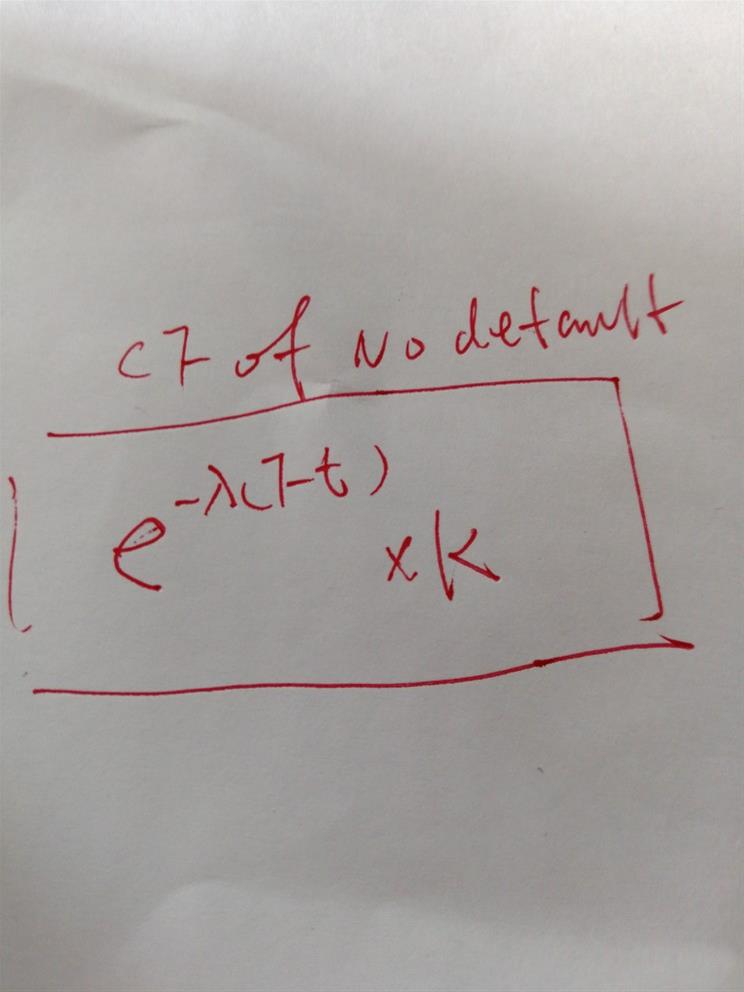 CF of No default
e^{-λ(T-t)} × K